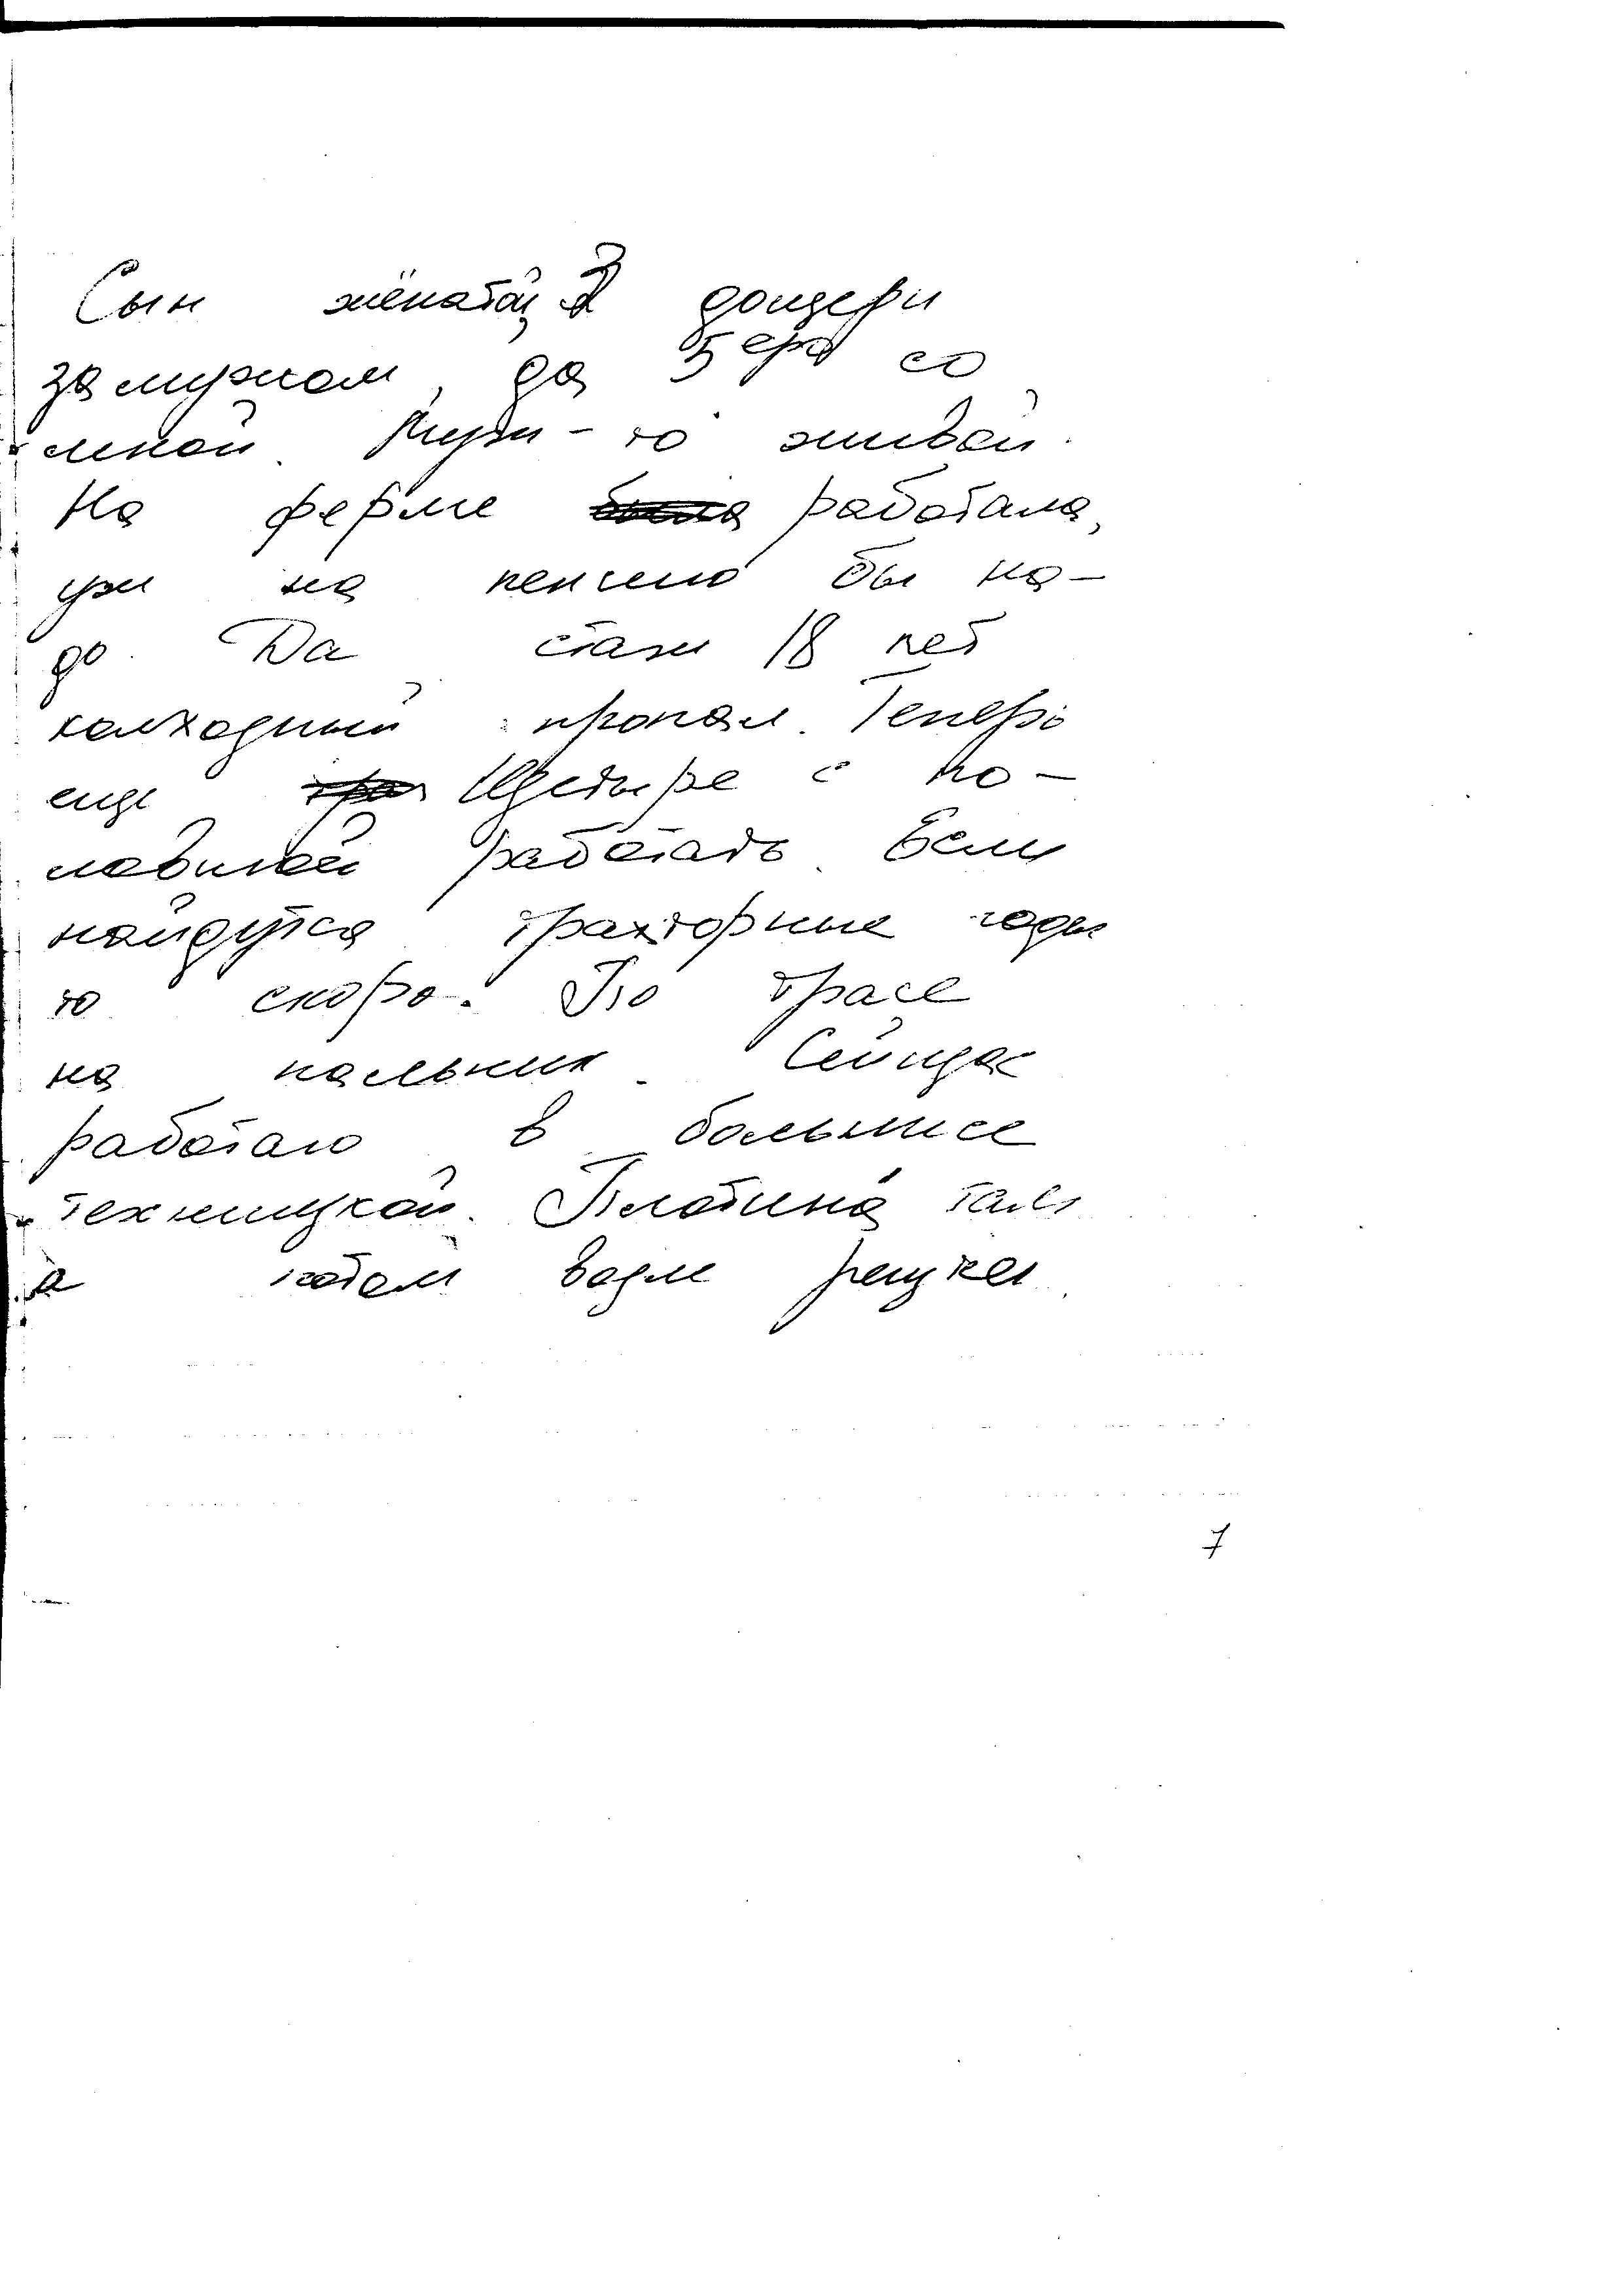 Сын жёнатой, 3 доцери
замужом, да 5ера со
мной. Мужи-то живой.
На ферме работала,
ужи на пенсию бы на-
до. Да стажи 18 лет
калхадный пропал. Теперь
ещё Цетыре с по-
ловиной работать. Если
найдутся трахторные годы
то скоро. По трасе
на пальник. Сейцас
работаю в больнисе
техницкой. Плотина там
а потом водле рецки.
7